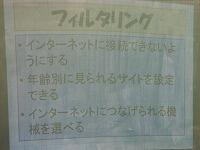 フィルタリング
・インターネットに接続できないよ
うにする
・年齢別に見られるサイトを設定
できる
・インターネットにつなげられる機
械を選べる